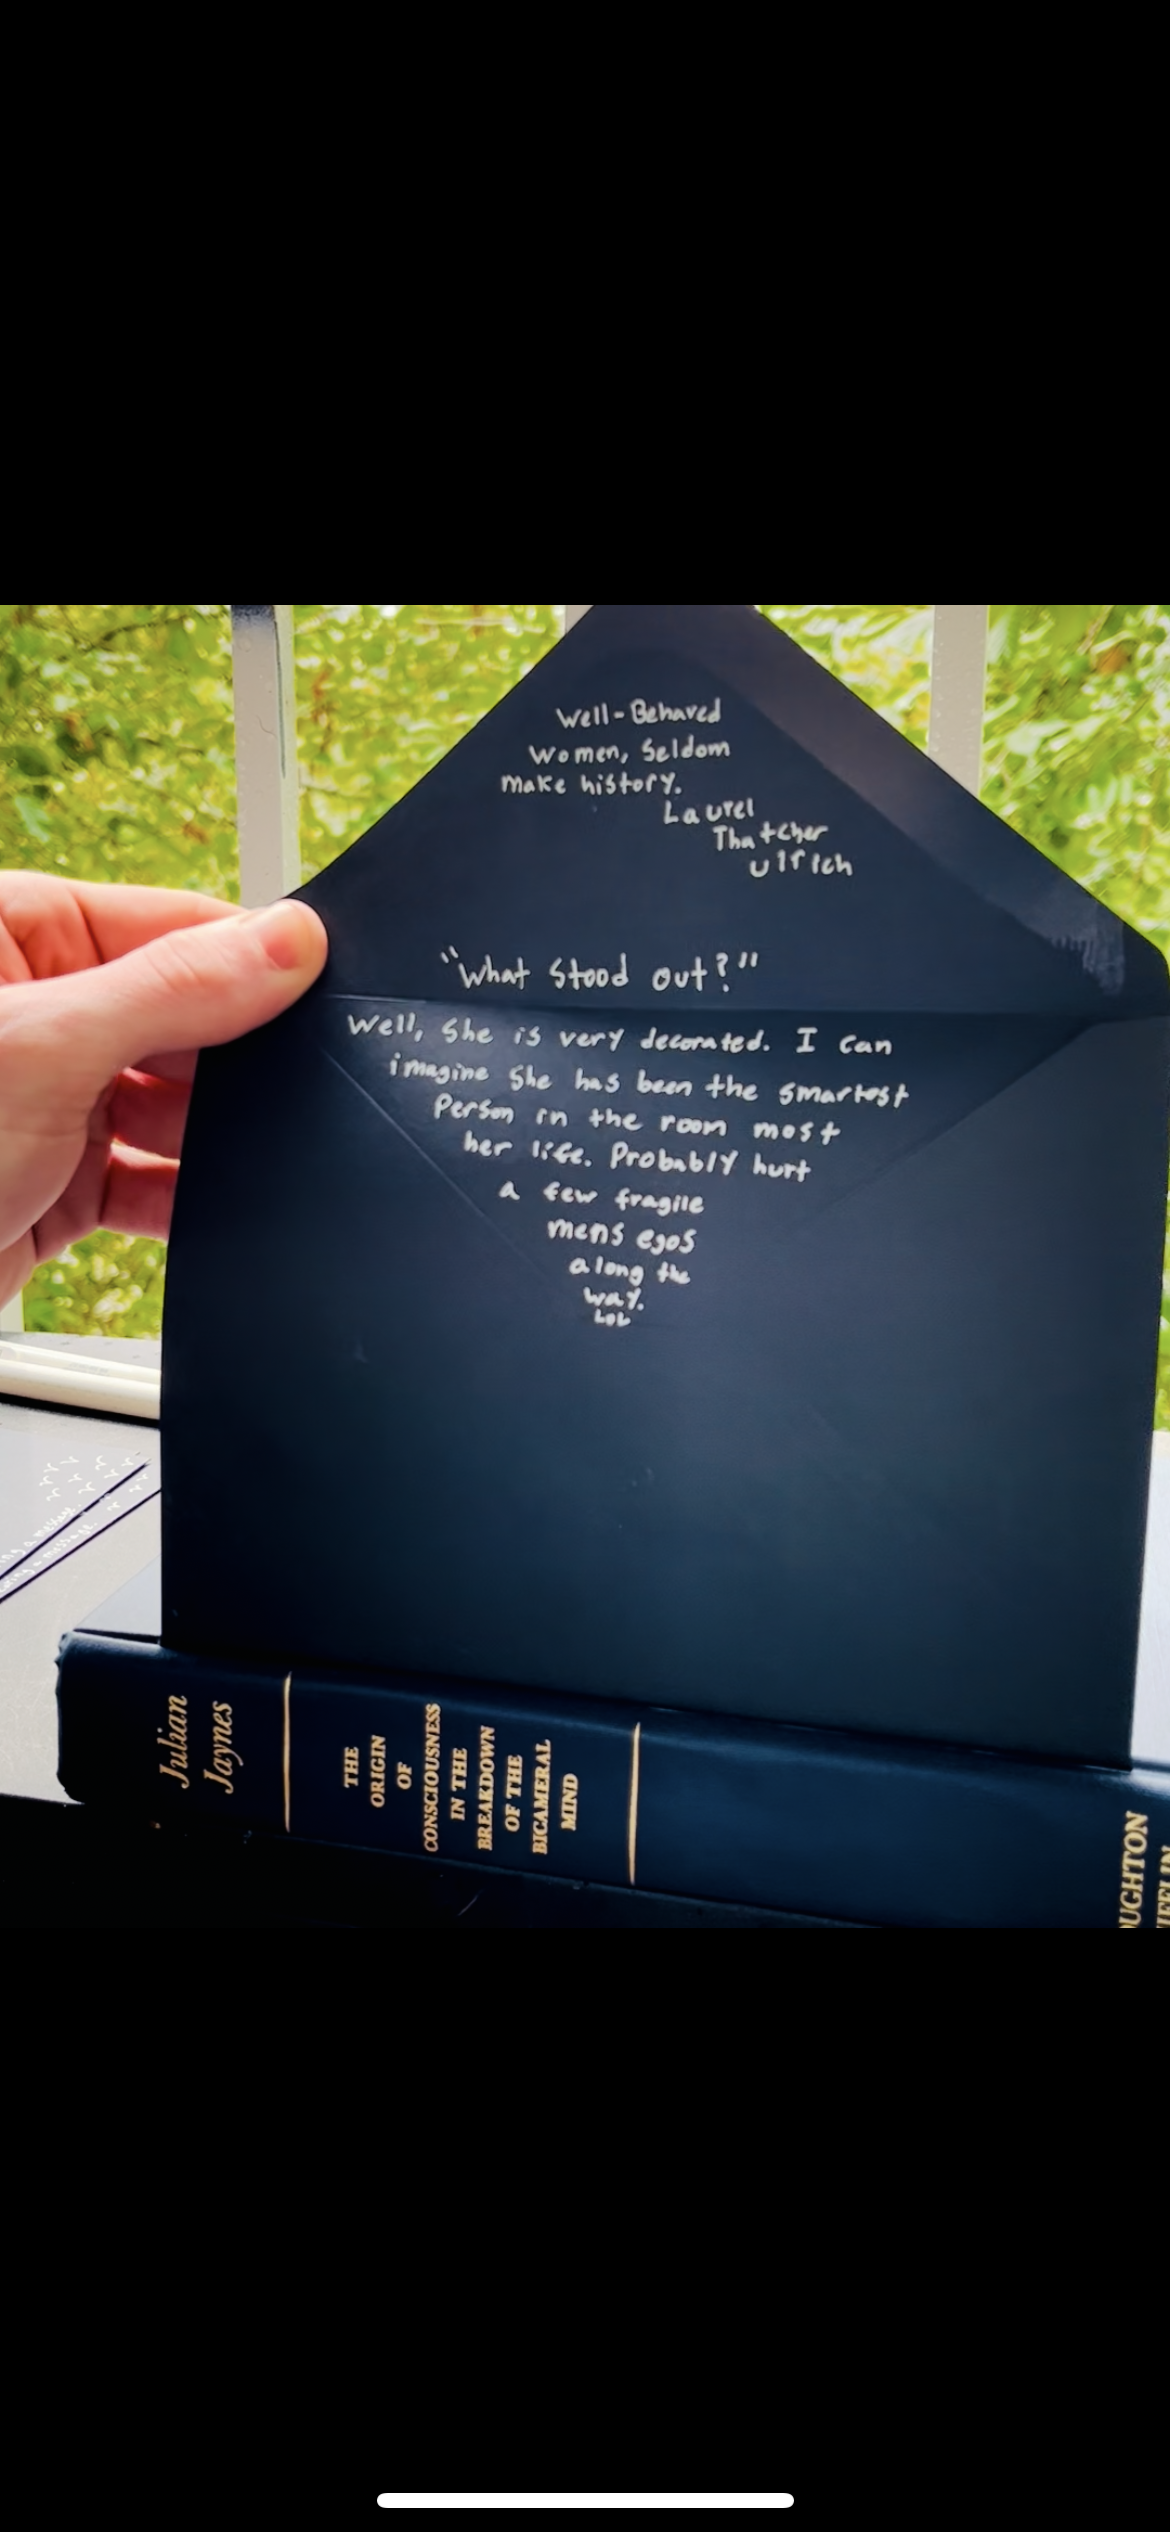 Well-Behaved
Women, Seldom
make history.
Laurel
Thatcher
Ulrich
"What Stood out?"
Well, She is very decorated. I can
imagine She has been the smartest
Person in the room most
her life. Probably hurt
a few fragile
mens egos
along the
way.
LOL
Julian
Jaynes
THE
ORIGIN
OF
CONSCIOUSNESS
IN THE
BREAKDOWN
OF THE
BICAMERAL
MIND